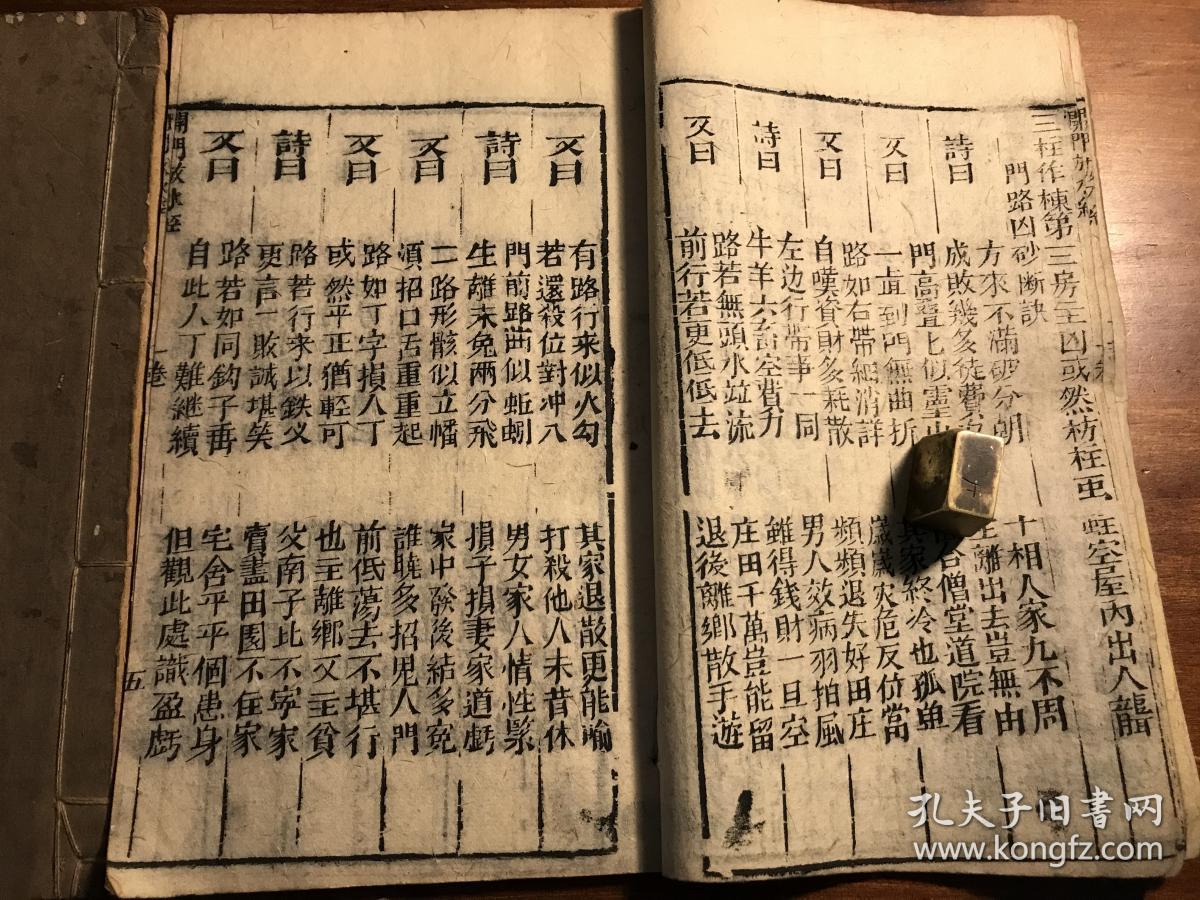 三柱作棟第三房主凶或然枋柱虫蛀空屋內出人聾
門路凶砂斷訣
方來不滿破分朝 十相人家九不周
詩曰 成敗幾多徒費 主離出去豈無由
門高疊七似霊山 谷僧堂道院看
又曰 一直到門無曲折 其家終冷也孤单
路如右帶細消詳 歲歲灾危反位當
又曰 自嘆資財多耗散 頻頻退失好田庄
左边行帶事一同 男人效病羽拍風
詩曰 牛羊六畜空費力 雖得錢財一旦空
路若無頭水並流 庄田千萬豈能留
又曰 前行若更低低去 退後離鄉散手遊
有路行来似火勾 其家退散更能諭
又曰 若還殺位對冲八 打殺他人未昔休
門前路曲似蚯蚓 男女家人情性緊
詩曰 生離未免兩分飛 損子損妻家道虧
二路形骸似立幡 家中發後結多寃
又曰 須招口舌重重起 誰曉多招児人門
路如丁字損人丁 前低蕩去不堪行
又曰 或然平正猶輕可 也主離鄉又主貧
路若行来以鉄义 父南子北不寧家
詩曰 更言一敗誠堪笑 賣盡田園不在家
路若如同鈎子再 宅舍平平個患身
又曰 自此人丁難継續 但觀此處識盈虧
一卷
五
孔夫子旧書网
www.kongfz.com